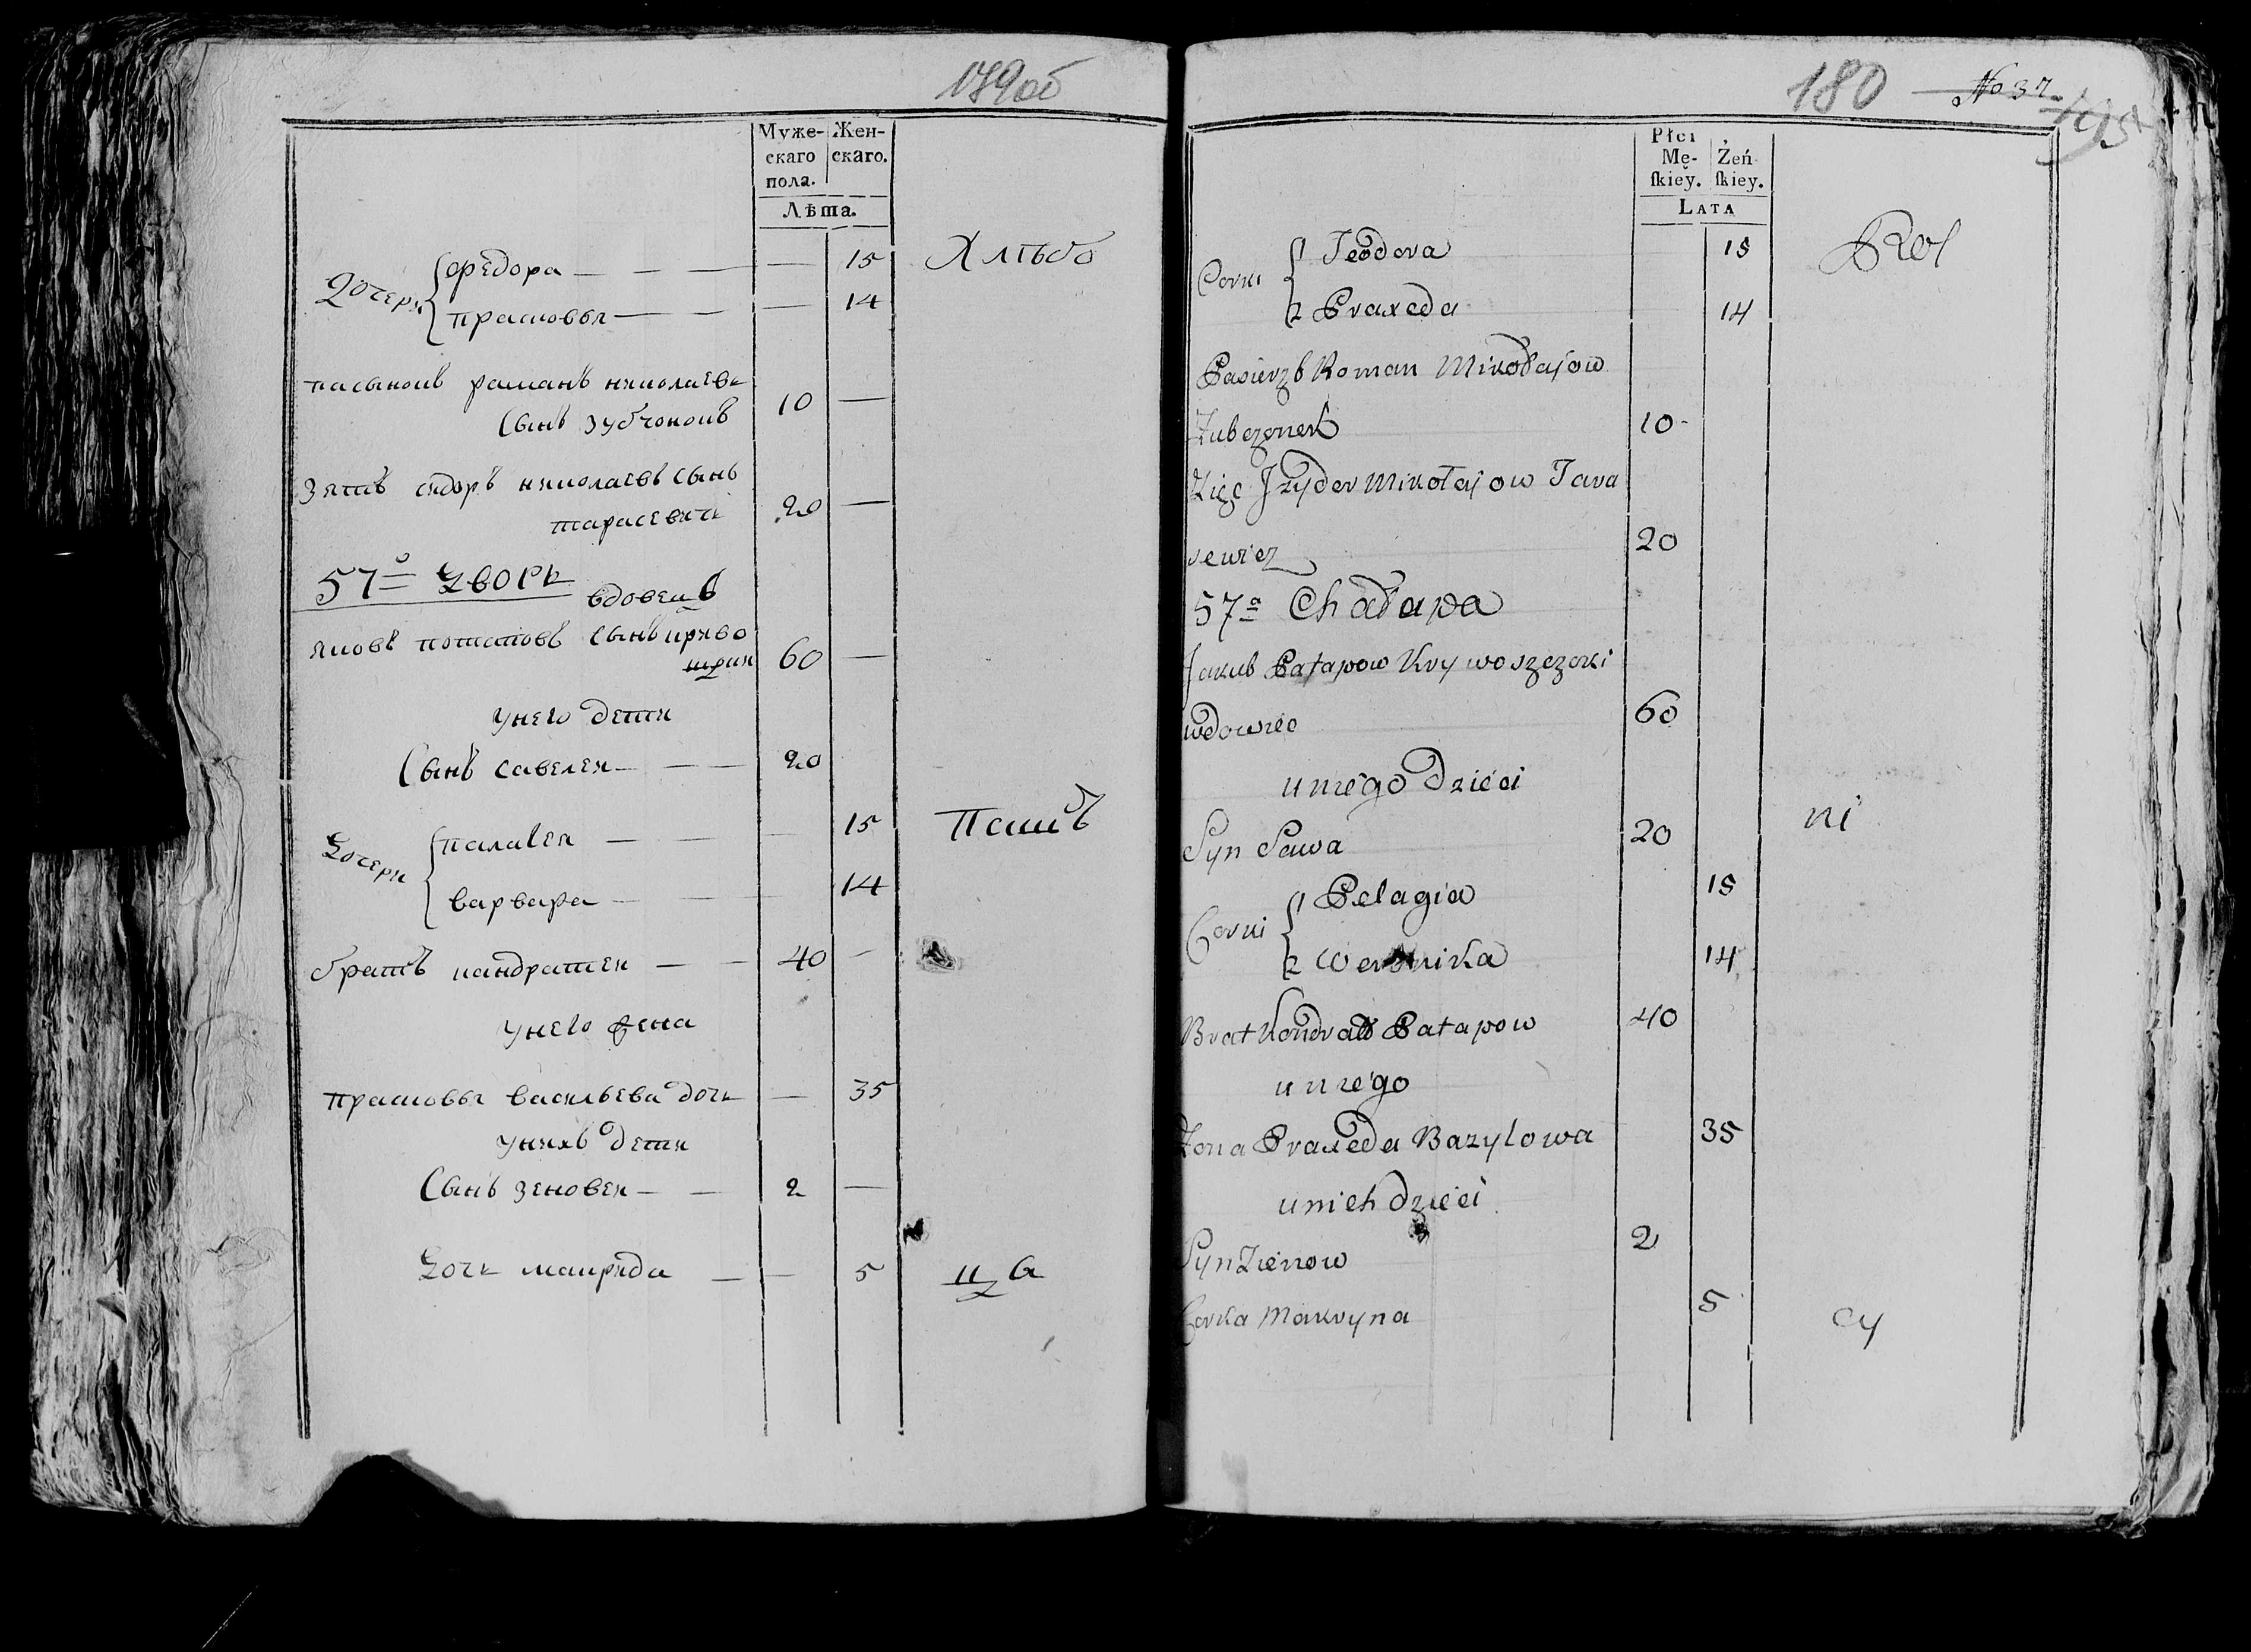 179об
Муже- Жен-
скаго скаго.
пола.
Лѣта.
Дочери { Федора — — — — 15 Хлѣбо
прасковья — — — 14
пасынокъ раманъ николаевъ
Сынъ зубчонокъ 10 —
Зять сидоръ николаевъ Сынъ
тарасевичь 20 —
57й дворъ вдовецъ
яковъ потаповъ Сынъ криво
щоки 60 —
унего дети
Сынъ савелеи — — — 20
Дочери { палагея — — 15 Пашъ
варвара — — 14
братъ кандратеи — — 40 —
унего жена
прасковья васильева дочь — 35
унихъ дети
Сынъ зеновеи — — 2 —
Дочь макрида — — 5 ца
180 No 37
Płci
Mę- Żeń-
ſkiey. ſkiey.
LATA
Corki { 1 Teodora 15 Rol
2 Praxeda 14
Pasierzb Roman Mikołajow
Zubczonek 10
Zięć Jzydor Mikołajow Tara
sewicz 20
57a Chałupa
Jakub Patapow Krywoszczoki
wdowiec 60
u niego dzieci
Syn Sawa 20 ni
Corki { 1 Pelagia 15
2 Weronika 14
Brat Kondrat Patapow 40
u niego
Zona Praxeda Bazylowa 35
u nich dzieci
Syn Zienow 2
Corka Makryna 5 cy